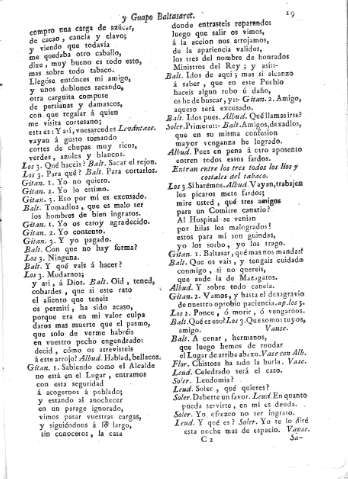 y Guapo Baltasaret. 19
compro una carga de azúcar,
de cacao, canela y clavo;
y viendo que todavia
me quedaba otro caballo,
dixe, muy bueno es todo esto,
mas sobre todo tabaco.
Llegóse entónces mi amigo,
y unos doblones sacando,
otra carguita compuse
de persianas y damascos,
con que regalar á quien
me visita cortesano;
esta es: Y así, vuesarcedes
vayan á gusto tomando
cortes de chupas muy ricos,
verdes, azules y blancos.
Los 3. Qué haceis? Balt. Sacar el rejon.
Los 3. Para qué? Balt. Para cortarlos.
Gitan. 1. Yo no quiero.
Gitan. 2. Yo lo estimo.
Gitan. 3. Eso por mí es excusado.
Balt. Tomadlos, que es malo ser
los hombres de bien ingratos.
Gitan. 1. Yo os estoy agradecido.
Gitan. 2. Yo contento.
Gitan. 3. Y yo pagado.
Balt. Con que no hay forma?
Los 3. Ninguna.
Balt. Y qué vais á hacer?
Los 3. Mudarnos;
y así, á Dios. Balt. Oid, tened,
cobardes, que si este rato
el aliento que teneis
os permití, ha sido acaso,
porque era en mi valor culpa
daros mas muerte que el pasmo,
que solo de verme habréis
en vuestro pecho engendrado:
decid, cómo os atrevisteis
á este arrojo? Albud. Hablad, bellacos.
Gitan. 1. Sabiendo como el Alcalde
no está en el Lugar, entramos
con esta seguridad
á acogernos á poblado;
y estando al anochecer
en un parage ignorado,
vimos pasar vuestras cargas,
y siguiéndoos á lo largo,
sin conoceros, la casa
donde entrasteis reparamos
luego que salir os vimos,
á la accion nos arrojamos,
de la apariencia validos,
los tres del nombre de honrados
Ministros del Rey; y así--
Balt. Idos de aquí; mas si alcanzo
á saber, que en este Pueblo
haceis algun robo ú daño,
os he de buscar, y-- Gitan. 2. Amigo,
aqueso será excusado.
Balt. Idos pues. Albud. Qué llamas irsa?
Soler. Primero-- Balt. Amigos, dexadlos,
que en su misma confusion
mayor venganza he logrado.
Albud. Pues en pena á otro aposento
entren todos esos fardos.
Entran entre los tres todos los lios y
costales del tabaco.
Los 3. Si haremos. Albud. Vayan, trabajen
los pícaros mete fardos;
mire usted, qué tres amigos
para un Comisre canario?
Al Hospital se venian
por hilas los malogrados!
estos para mí son guindas,
yo los sorbo, yo los trago.
Gitan. 1. Baltasar, qué mas nos mandas?
Balt. Que os vais, y tengais cuidado
conmigo, si no quereis,
que ande la de Mazagatos.
Albud. Y sobre todo canela.
Gitan. 2. Vamos, y hasta el desagravio
de nuestro oprobio paciencia. ap. los 3.
Los 2. Ponce, ó morir, ó vengarnos.
Balt. Qué es eso? Los 3. Que somos tuyos,
amigo. Vanse.
Balt. A cenar, hermanos,
que luego hemos de rondar
el Lugar de arriba abaxo. Vase con Alb.
Flor. Chistosa ha sido la burla. Vase.
Leud. Celedrado será el caso.
Soler. Leudomia?
Leud. Soler, qué quieres?
Soler. Deberte un favor. Leud. En quanto
pueda servirte, en mí es deuda.
Soler. Yo ofrezco no ser ingrato.
Leud. Y qué es? Soler. Yo te lo diré
esta noche mas de espacio. Vanse.
C 2 Sa-